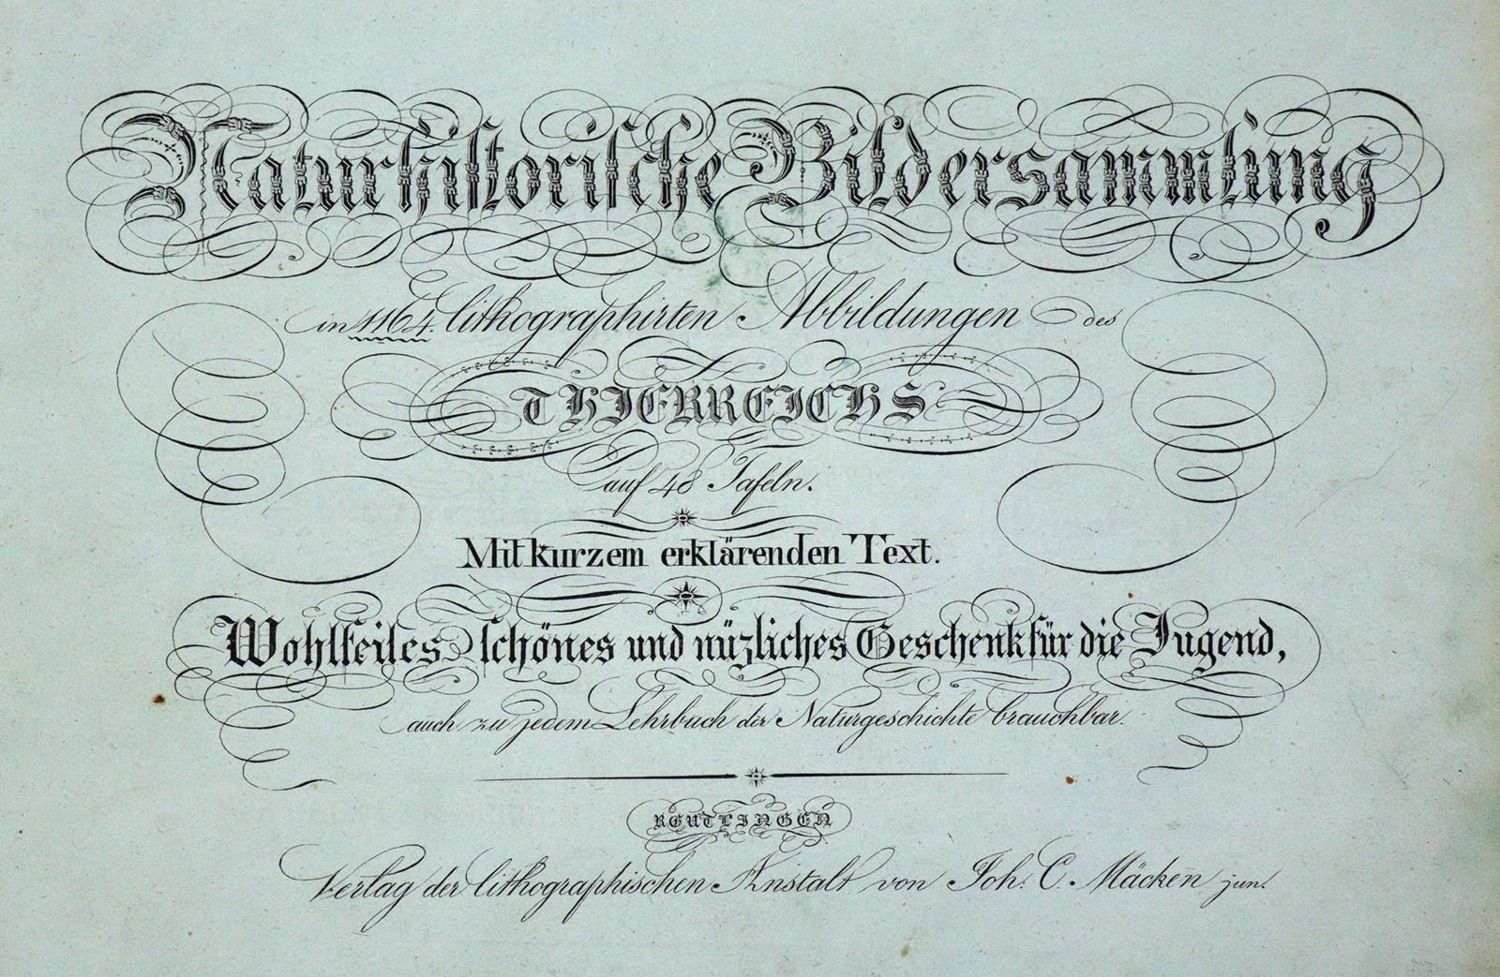 Naturhistorische Bildersammlung
in 1164 lithographirten Abbildungen des
THIERREICHS
auf 48 Tafeln.
Mit kurzem erklärenden Text.
Wohlfeiles schönes und nüzliches Geschenk für die Jugend,
auch zu jedem Lehrbuch der Naturgeschichte brauchbar.
REUTLINGEN
Verlag der lithographischen Anstalt von Joh. C. Mäcken jun.